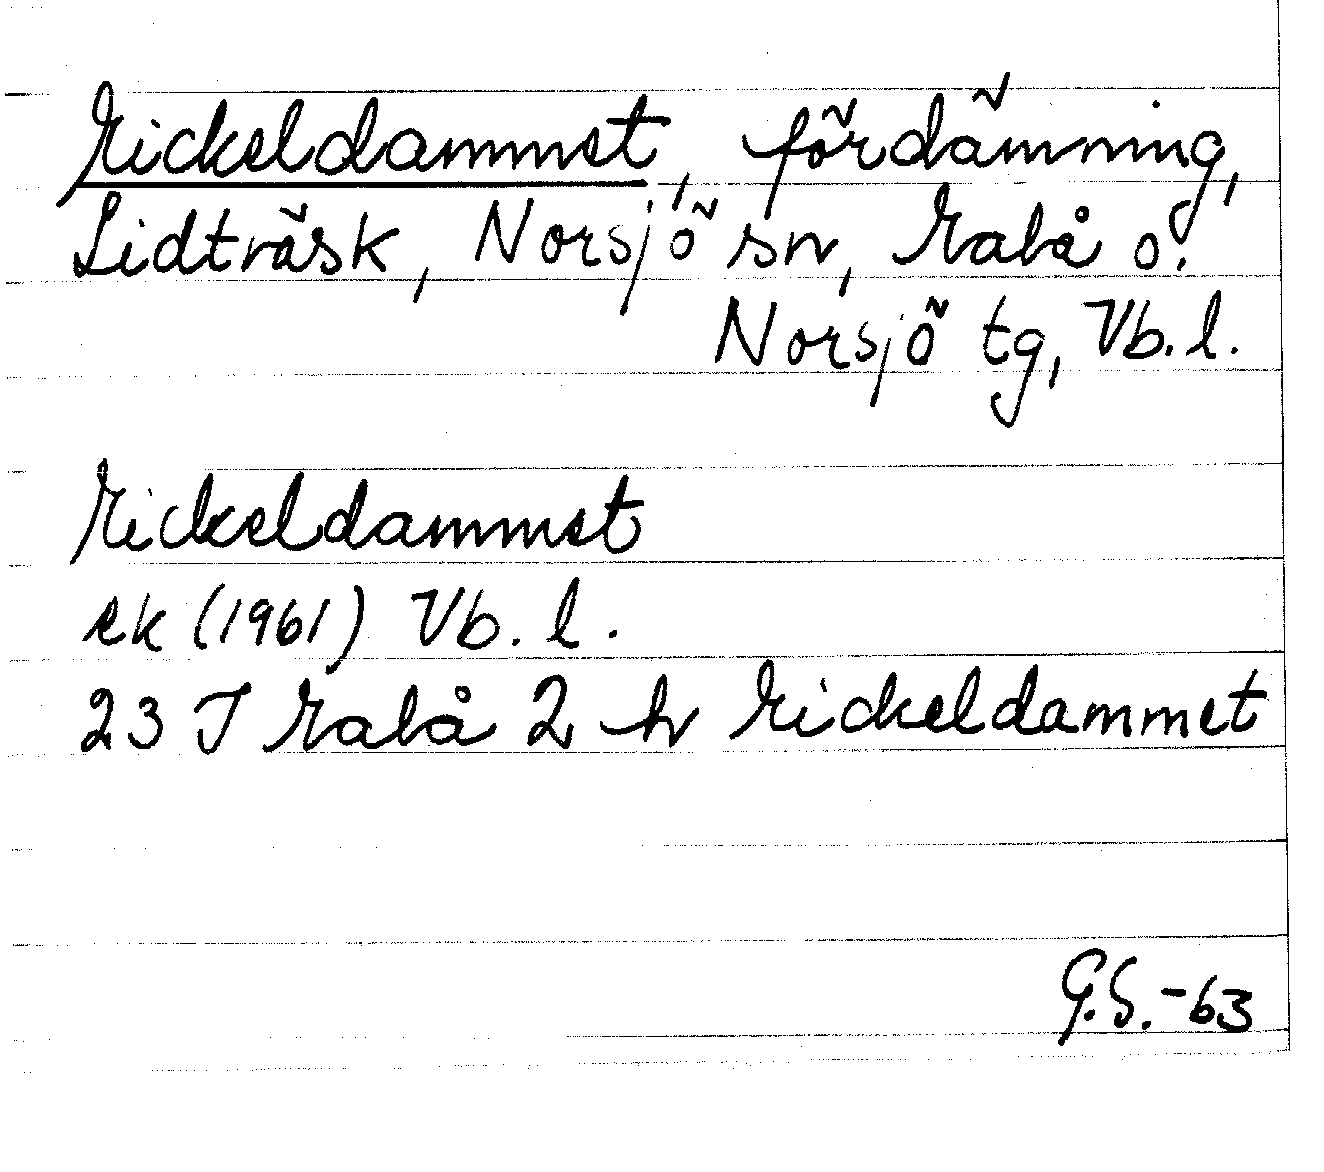 Mickeldammet, fördämning,
Lidträsk, Norsjö sn, Malå o.
Norsjö tg, Vb. l.
Mickeldammet
ek (1961) Vb. l.
23 I Malå 2 h Mickeldammet
G.S.-63